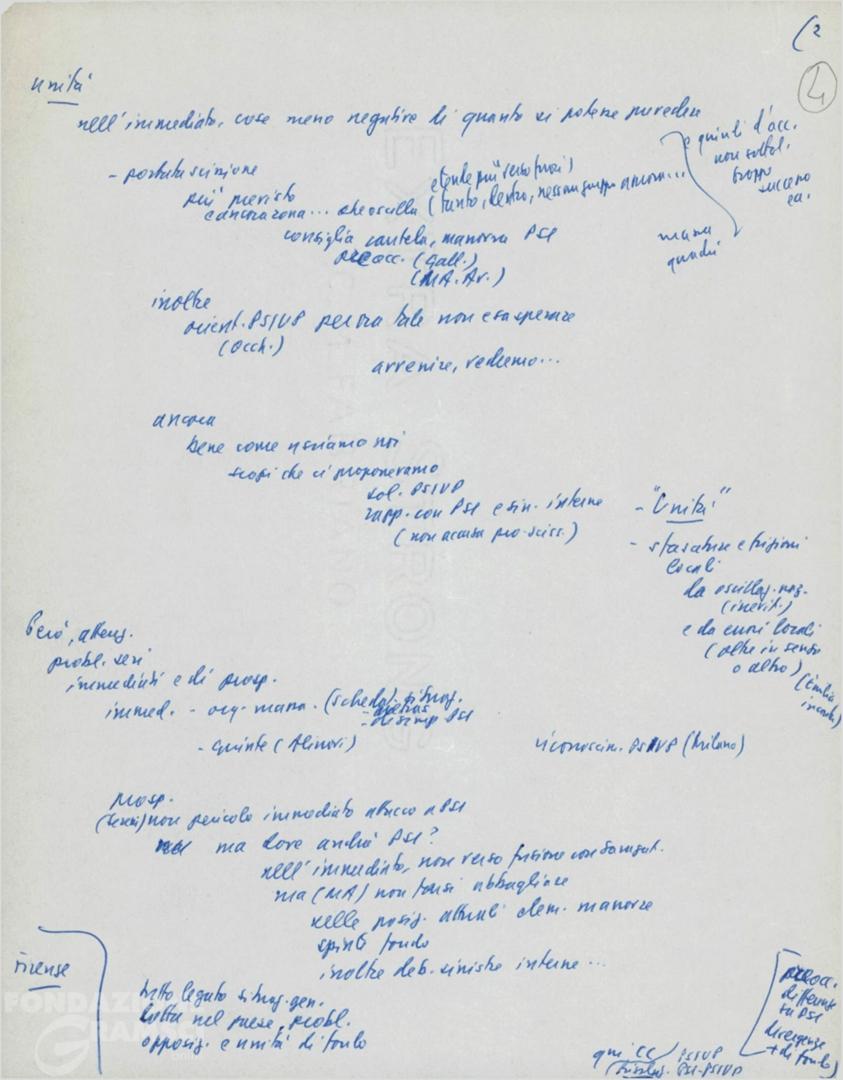 (2
4
unità
nell'immediato, cose meno negative di quanto si potesse prevedere
- portata scissione
più previsto
e ancora zona... che oscilla (tanto, dentro, nessun gruppo ancora...
e tende più verso fuori)
consiglia cautela, manovra PSI
preocc. (Gall.)
(MA. Av.)
e quindi d'acc.
non sottol.
troppo
successo
ea.
massa
quadri
inoltre
orient. PSIUP per ora tale non esasperare
(Occh.)
avvenire, vedremo...
ancora
bene come usciamo noi
scopi che ci proponevamo
sol. PSIUP
rapp. con PSI e sin. interne
(non accusa pro-sciss.)
- "Unità"
- sfasature e frizioni
locali
da oscillaz. naz.
(inevit.)
e da errori locali
(oltre in senso
o altro)
(Emilia
Però, attenz.
probl. seri
immediati e di prosp.
immed. - org. massa. (sched.
- disimp PSI
- giunte (Alinovi)
riconoscim. PSIUP (Milano)
prosp.
non pericolo immediato attacco a PSI
ma dove andrà PSI?
nell'immediato, non verso fusione con Saragat.
ma (MA) non farsi abbagliare
nelle posiz. attuali elem. manovra
spinti fondo
inoltre deb. sinistre interne...
Firenze
tutto legato situaz. gen.
lotta nel paese, probl.
opposiz. e unità di fondo
preocc.
differenze
su PSI
divergenze
+ di fondo)
qui CC PSIUP
PSI-PSIUP
FONDAZIONE
GRAMSCI
EXTRA STRONG